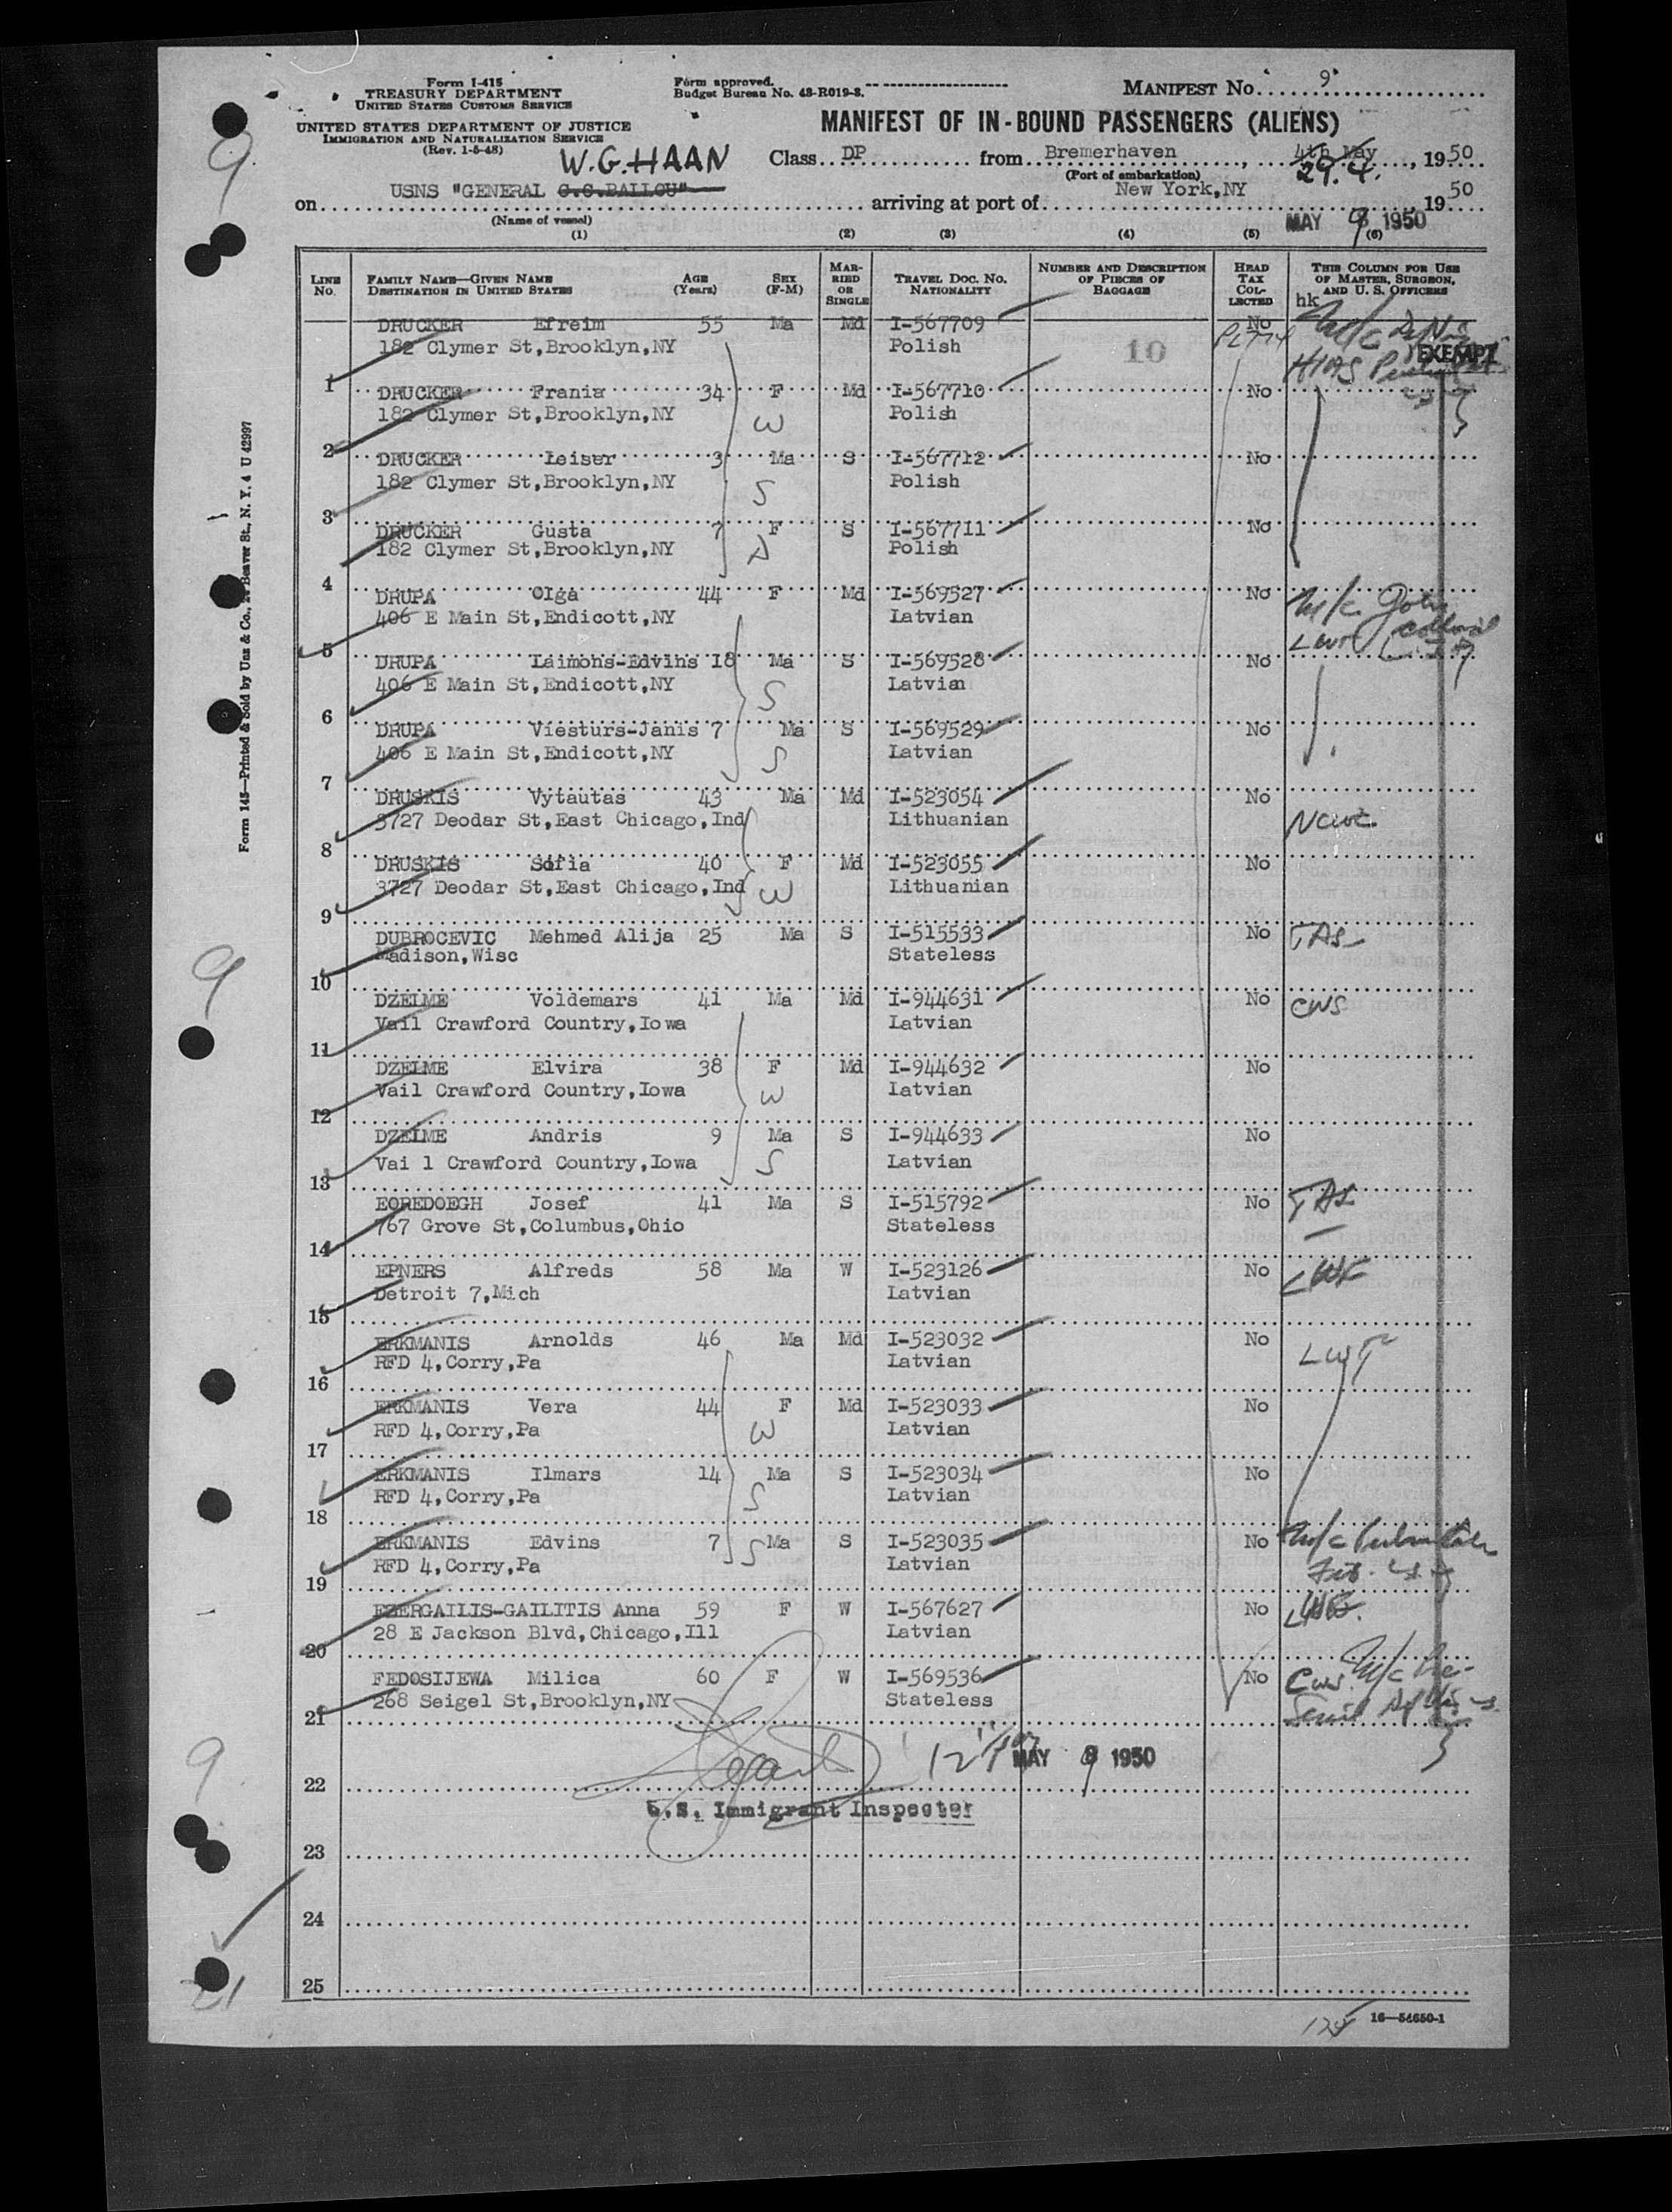 Form I-415
TREASURY DEPARTMENT
UNITED STATES CUSTOMS SERVICE
UNITED STATES DEPARTMENT OF JUSTICE
IMMIGRATION AND NATURALIZATION SERVICE
(Rev. 1-5-48)
Form approved.
Budget Bureau No. 43-R019-3.
MANIFEST NO. 9
MANIFEST OF IN-BOUND PASSENGERS (ALIENS)
W.G.HAAN
Class DP from Bremerhaven, 4th May 29.4., 1950
(Port of embarkation)
on USNS "GENERAL C.C.BALLOU" arriving at port of New York,NY 1950
(Name of vessel)
MAY 9 1950
(1) (2) (3) (4) (5) (6)
LINE NO. FAMILY NAME—GIVEN NAME DESTINATION IN UNITED STATES AGE (Years) SEX (F-M) MARRIED OR SINGLE TRAVEL DOC. NO. NATIONALITY NUMBER AND DESCRIPTION OF PIECES OF BAGGAGE HEAD TAX COLLECTED THIS COLUMN FOR USE OF MASTER, SURGEON, AND U. S. OFFICERS
hk
DRUCKER Efreim 55 Ma Md I-567709 No
182 Clymer St,Brooklyn,NY Polish 10 EXEMPT
HIAS
1 DRUCKER Frania 34 F Md I-567710 No
182 Clymer St,Brooklyn,NY Polish
W
2 DRUCKER Leiser 3 Ma S I-567712 No
182 Clymer St,Brooklyn,NY Polish
S
3 DRUCKER Gusta 7 F S I-567711 No
182 Clymer St,Brooklyn,NY Polish
D
4 DRUPA Olga 44 F Md I-569527 No M/c John
406 E Main St,Endicott,NY Latvian
5 DRUPA Laimons-Edvins 18 Ma S I-569528 No
406 E Main St,Endicott,NY Latvian
S
6 DRUPA Viesturs-Janis 7 Ma S I-569529 No
406 E Main St,Endicott,NY Latvian
S
7 DRUSKIS Vytautas 43 Ma Md I-523054 No
3727 Deodar St,East Chicago,Ind Lithuanian NCWC
8 DRUSKIS Sofia 40 F Md I-523055 No
3727 Deodar St,East Chicago,Ind Lithuanian
W
9 DUBROCEVIC Mehmed Alija 25 Ma S I-515533 No TAS
Madison,Wisc Stateless
10 DZELME Voldemars 41 Ma Md I-944631 No CWS
Vail Crawford Country,Iowa Latvian
11 DZELME Elvira 38 F Md I-944632 No
Vail Crawford Country,Iowa Latvian
W
12 DZELME Andris 9 Ma S I-944633 No
Vai l Crawford Country,Iowa Latvian
S
13 EOREDOEGH Josef 41 Ma S I-515792 No TAS
767 Grove St,Columbus,Ohio Stateless
14 EPNERS Alfreds 58 Ma W I-523126 No LWF
Detroit 7,Mich Latvian
15 ERKMANIS Arnolds 46 Ma Md I-523032 No
RFD 4,Corry,Pa Latvian LWF
16 ERKMANIS Vera 44 F Md I-523033 No
RFD 4,Corry,Pa Latvian
W
17 ERKMANIS Ilmars 14 Ma S I-523034 No
RFD 4,Corry,Pa Latvian
S
18 ERKMANIS Edvins 7 Ma S I-523035 No
RFD 4,Corry,Pa Latvian
S
19 EZERGAILIS-GAILITIS Anna 59 F W I-567627 No LWF.
28 E Jackson Blvd,Chicago,Ill Latvian
20 FEDOSIJEWA Milica 60 F W I-569536 No CWS M/c
268 Seigel St,Brooklyn,NY Stateless
21
MAY 9 1950
22
U.S. Immigrant Inspector
23
24
25
16—54650-1
Form 145—Printed & Sold by Unz & Co., Beaver St., N. Y. 4 U 42997
9
9
9
21